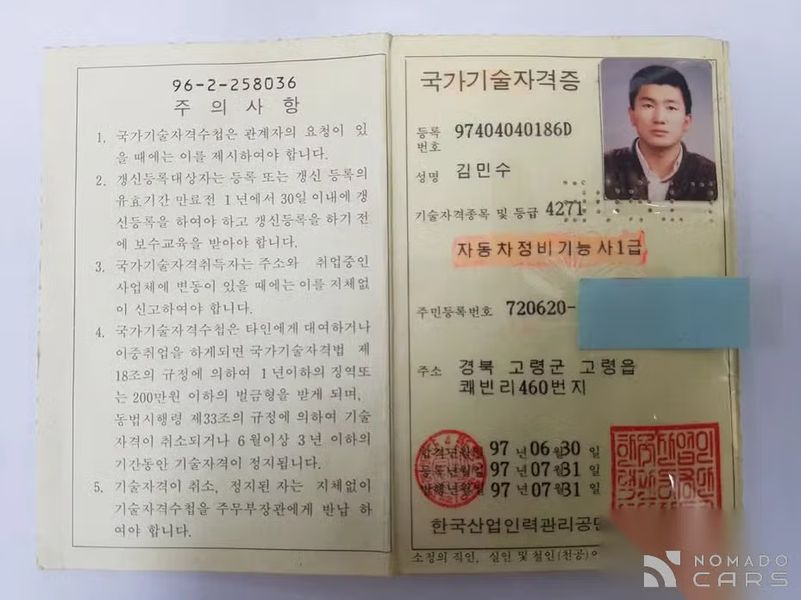 96-2-258036
주 의 사 항
1. 국가기술자격수첩은 관계자의 요청이 있
을 때에는 이를 제시하여야 합니다.
2. 갱신등록대상자는 등록 또는 갱신 등록의
유효기간 만료전 1년에서 30일 이내에 갱
신등록을 하여야 하고 갱신등록을 하기 전
에 보수교육을 받아야 합니다.
3. 국가기술자격취득자는 주소와 취업중인
사업체에 변동이 있을 때에는 이를 지체없
이 신고하여야 합니다.
4. 국가기술자격수첩은 타인에게 대여하거나
이중취업을 하게되면 국가기술자격법 제
18조의 규정에 의하여 1년이하의 징역또
는 200만원 이하의 벌금형을 받게 되며,
동법시행령 제33조의 규정에 의하여 기술
자격이 취소되거나 6월이상 3년 이하의
기간동안 기술자격이 정지됩니다.
5. 기술자격이 취소, 정지된 자는 지체없이
기술자격수첩을 주무부장관에게 반납 하
여야 합니다.
국가기술자격증
등록번호 97404040186D
성명 김민수
기술자격종목 및 등급 4271
자동차정비기능사1급
주민등록번호 720620-
주소 경북 고령군 고령읍
쾌빈리460번지
합격년월일 97 년 06 월 30 일
등록년월일 97 년 07 월 31 일
발행년월일 97 년 07 월 31 일
한국산업인력관리공단
소정의 직인, 실인 및 철인(천공)이
NOMADO
CARS